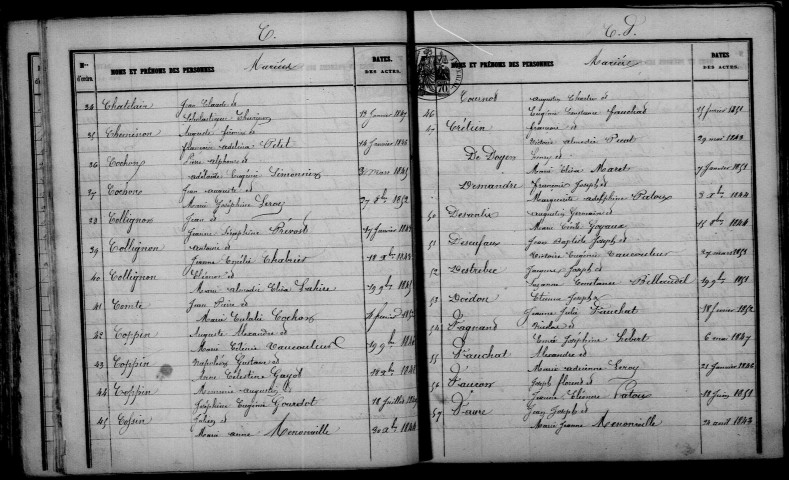 C.
Nos d'ordre.
NOMS ET PRÉNOMS DES PERSONNES
Mariées
DATES DES ACTES.
34 Chatelain Jean Claude et
Scholastique Thevignon 12 Janvier 1847
35 Chemenon Auguste et
Petit 14 Janvier 1846
36 Cochon Pierre alphonse et
adélaïde Eugénie Simonnin 3 Mars 1845
37 Cochon Jean auguste et
Marie Joséphine Leroy 27 8bre 1852
38 Collignon Jean et
Jeanne Joséphine Prévost 17 Janvier 1843
39 Collignon antoine et
Jeanne Emélie Chabrier 18 Xbre 1843
40 Collignon Eléonor et
Marie Lahire 19 9bre 1845
41 Comté Jean Pierre et
Marie Eulalie Cochon février 1852
42 Coppin Auguste Alexandre et
Marie Vaucouleur 19 9bre
43 Coppin Napoléon Gustave et
Anne Célestine Gayot 18 Xbre 1848
44 Coppin augustin et
Joséphine Eugénie Gourdot 18 Juillet
45 Cossin et
Marie anne Menonville 30 Xbre 1844
C. D.
NOMS ET PRÉNOMS DES PERSONNES
Mariées
DATES DES ACTES.
46 Cournot augustin Charles et
Eugénie Constance Fauchat 15 février 1851
47 Crétien François et
Victoire almedie Picot 29 mai 1843
De Doyen et
Marie Maret 7 Janvier 1851
Demandre François Joseph et
Marguerite adelphine Patoux 3 Xbre 1844
50 augustin Germain et
Marie Goyaux 15 8bre 1844
51 Desufaux Jean Baptiste Joseph et
Victoire Eugénie Vaucouleur 27 mars 1851
52 Destrebec Jacques Joseph et
Suzanne Constance 19 9bre 1851
53 Doidon Etienne Joseph et
Jeanne Julie Fauchat 18 février 1852
54 Fagnand Nicolas et
Joséphine Hébert 6 mai 1847
55 Fauchat Alexandre et
Marie adrienne Leroy 21 Janvier 1846
56 Faucon Joseph florent et
Jeanne Eléonore Patoux 18 Juin 1851
57 Favre Jean Joseph et
Marie Jeanne Menonville 24 avril 1843